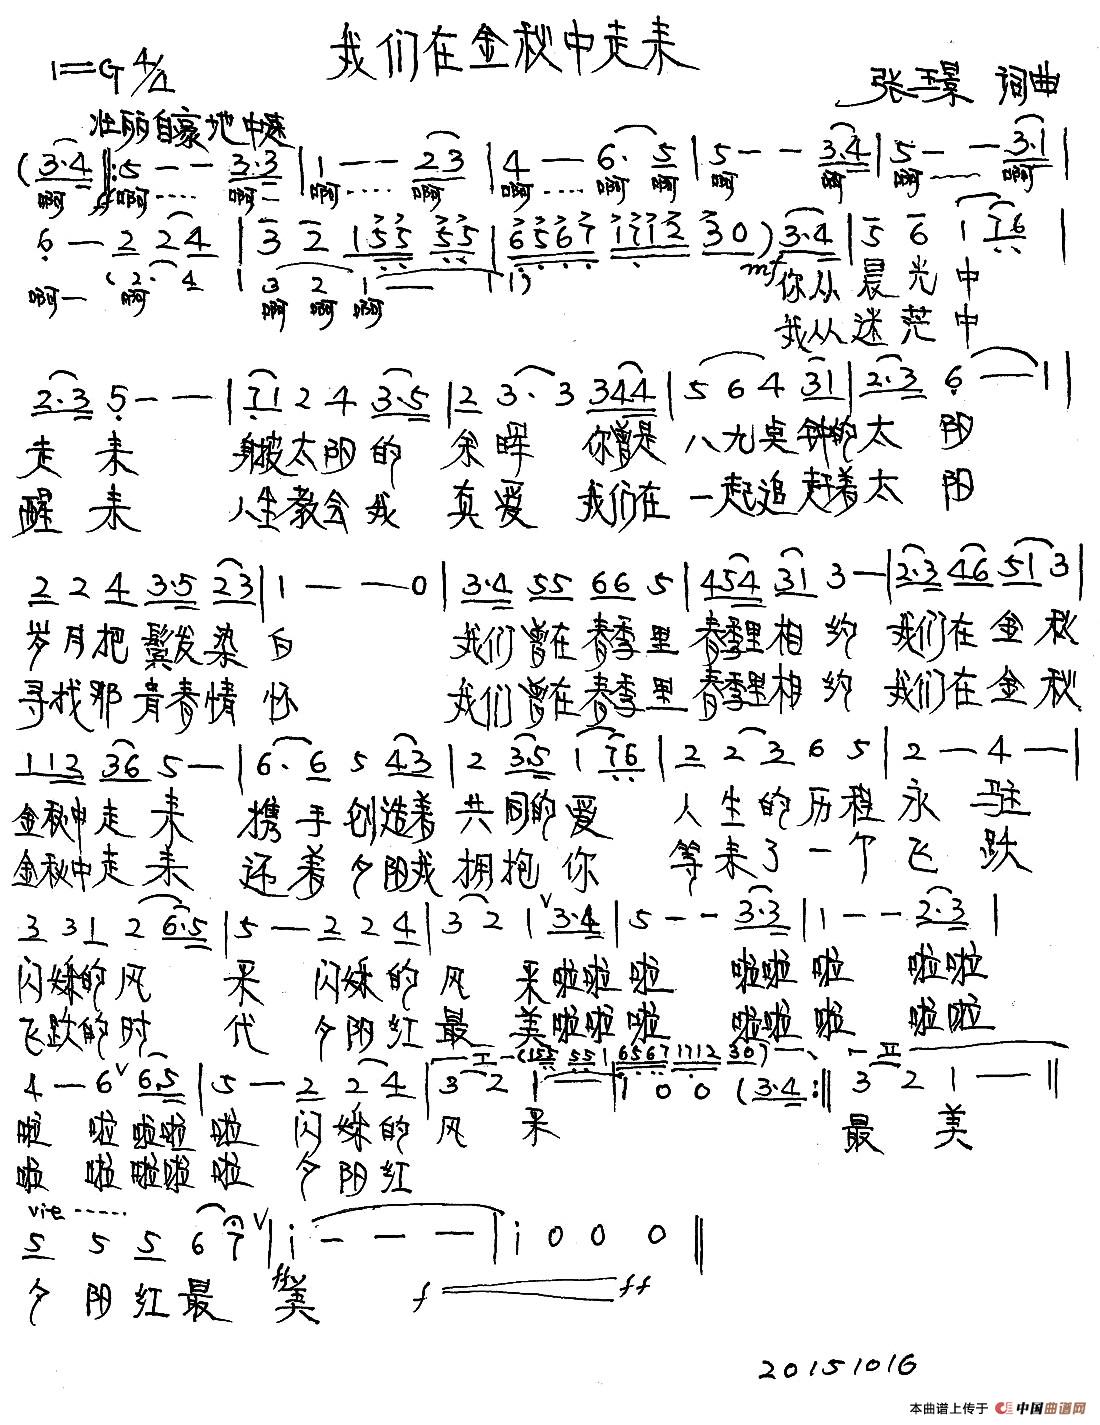 我们在金秋中走来
1=G 4/4
张玉景 词曲
壮丽自豪地 中速
(3·4 ‖: 5 - - 3·3 | 1 - - 2 3 | 4 - 6· 5 | 5 - - 3·4 | 5 - - 3·1 |
啊 啊…… 啊一 啊…… 啊 啊…… 啊 啊 啊 啊 啊 啊
6 - 2 2 4 | 3 2 1 5 5 5 5 | 6 5 6 7 1 7 1 2 3 0 ) 3·4 | 5 6 1 7 6 |
(2· 4 | 3 2 1 - | 1) mf
啊一 啊 啊 啊 啊 你从晨光中
我从迷茫中
2·3 5 - - | 7 1 2 4 3·5 | 2 3· 3 3 4 4 | 5 6 4 3 1 | 2·3 6 - 1 |
走来 身披太阳的余晖 你曾是八九点钟的太阳
醒来 人生教会我真爱 我们在一起追赶着太阳
2 2 4 3·5 2 3 | 1 - - 0 | 3·4 5 5 6 6 5 | 4 5 4 3 1 3 - | 2·3 4 6 5 1 3 |
岁月把鬓发染白 我们曾在春季里春季里相约 我们在金秋
寻找那青春情怀 我们曾在春季里春季里相约 我们在金秋
1 1 2 3 6 5 - | 6· 6 5 4 3 | 2 3·5 1 7 6 | 2 2 3 6 5 | 2 - 4 - |
金秋中走来 携手创造着共同的爱 人生的历程永驻
金秋中走来 还着夕阳我拥抱你 等来了一个飞跃
3 3 1 2 6·5 | 5 - 2 2 4 | 3 2 1 ∨ 3·4 | 5 - - 3·3 | 1 - - 2·3 |
闪烁的风采 闪烁的风采啦啦啦 啦啦啦 啦啦
飞跃的时代 夕阳红最美啦啦啦 啦啦啦 啦啦
(1 5 5 5 5 | 6 5 6 7 1 7 1 2 3 0)
4 - 6 ∨ 6·5 | 5 - 2 2 4 | 3 2 1 - | 1 0 0 (3·4 :‖ 3 2 1 - - ‖
啦 啦啦啦啦 闪烁的风采 最美
啦 啦啦啦啦 夕阳红
5 5 5 6 7 ∨ | i - - - | i 0 0 0 ‖
夕阳红最美 f ff
20151016
本曲谱上传于 中国曲谱网